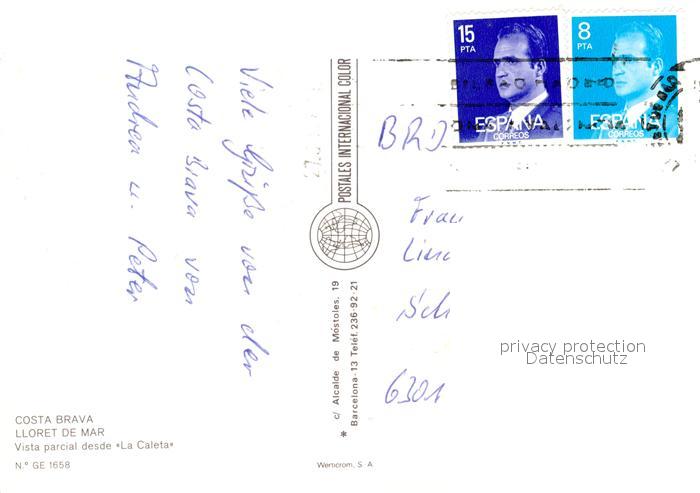 Viele Grüße von der
Costa Brava von
Andrea u. Peter
POSTALES INTERNACIONAL COLOR
c/ Alcalde de Móstoles, 19
Barcelona-13 Teléf. 236-92-21
*
15
PTA
ESPAÑA
CORREOS
8
PTA
ESPAÑA
CORREOS
BRD
Frau
6301
privacy protection
Datenschutz
COSTA BRAVA
LLORET DE MAR
Vista parcial desde «La Caleta»
N.º GE 1658
Werticrom, S. A